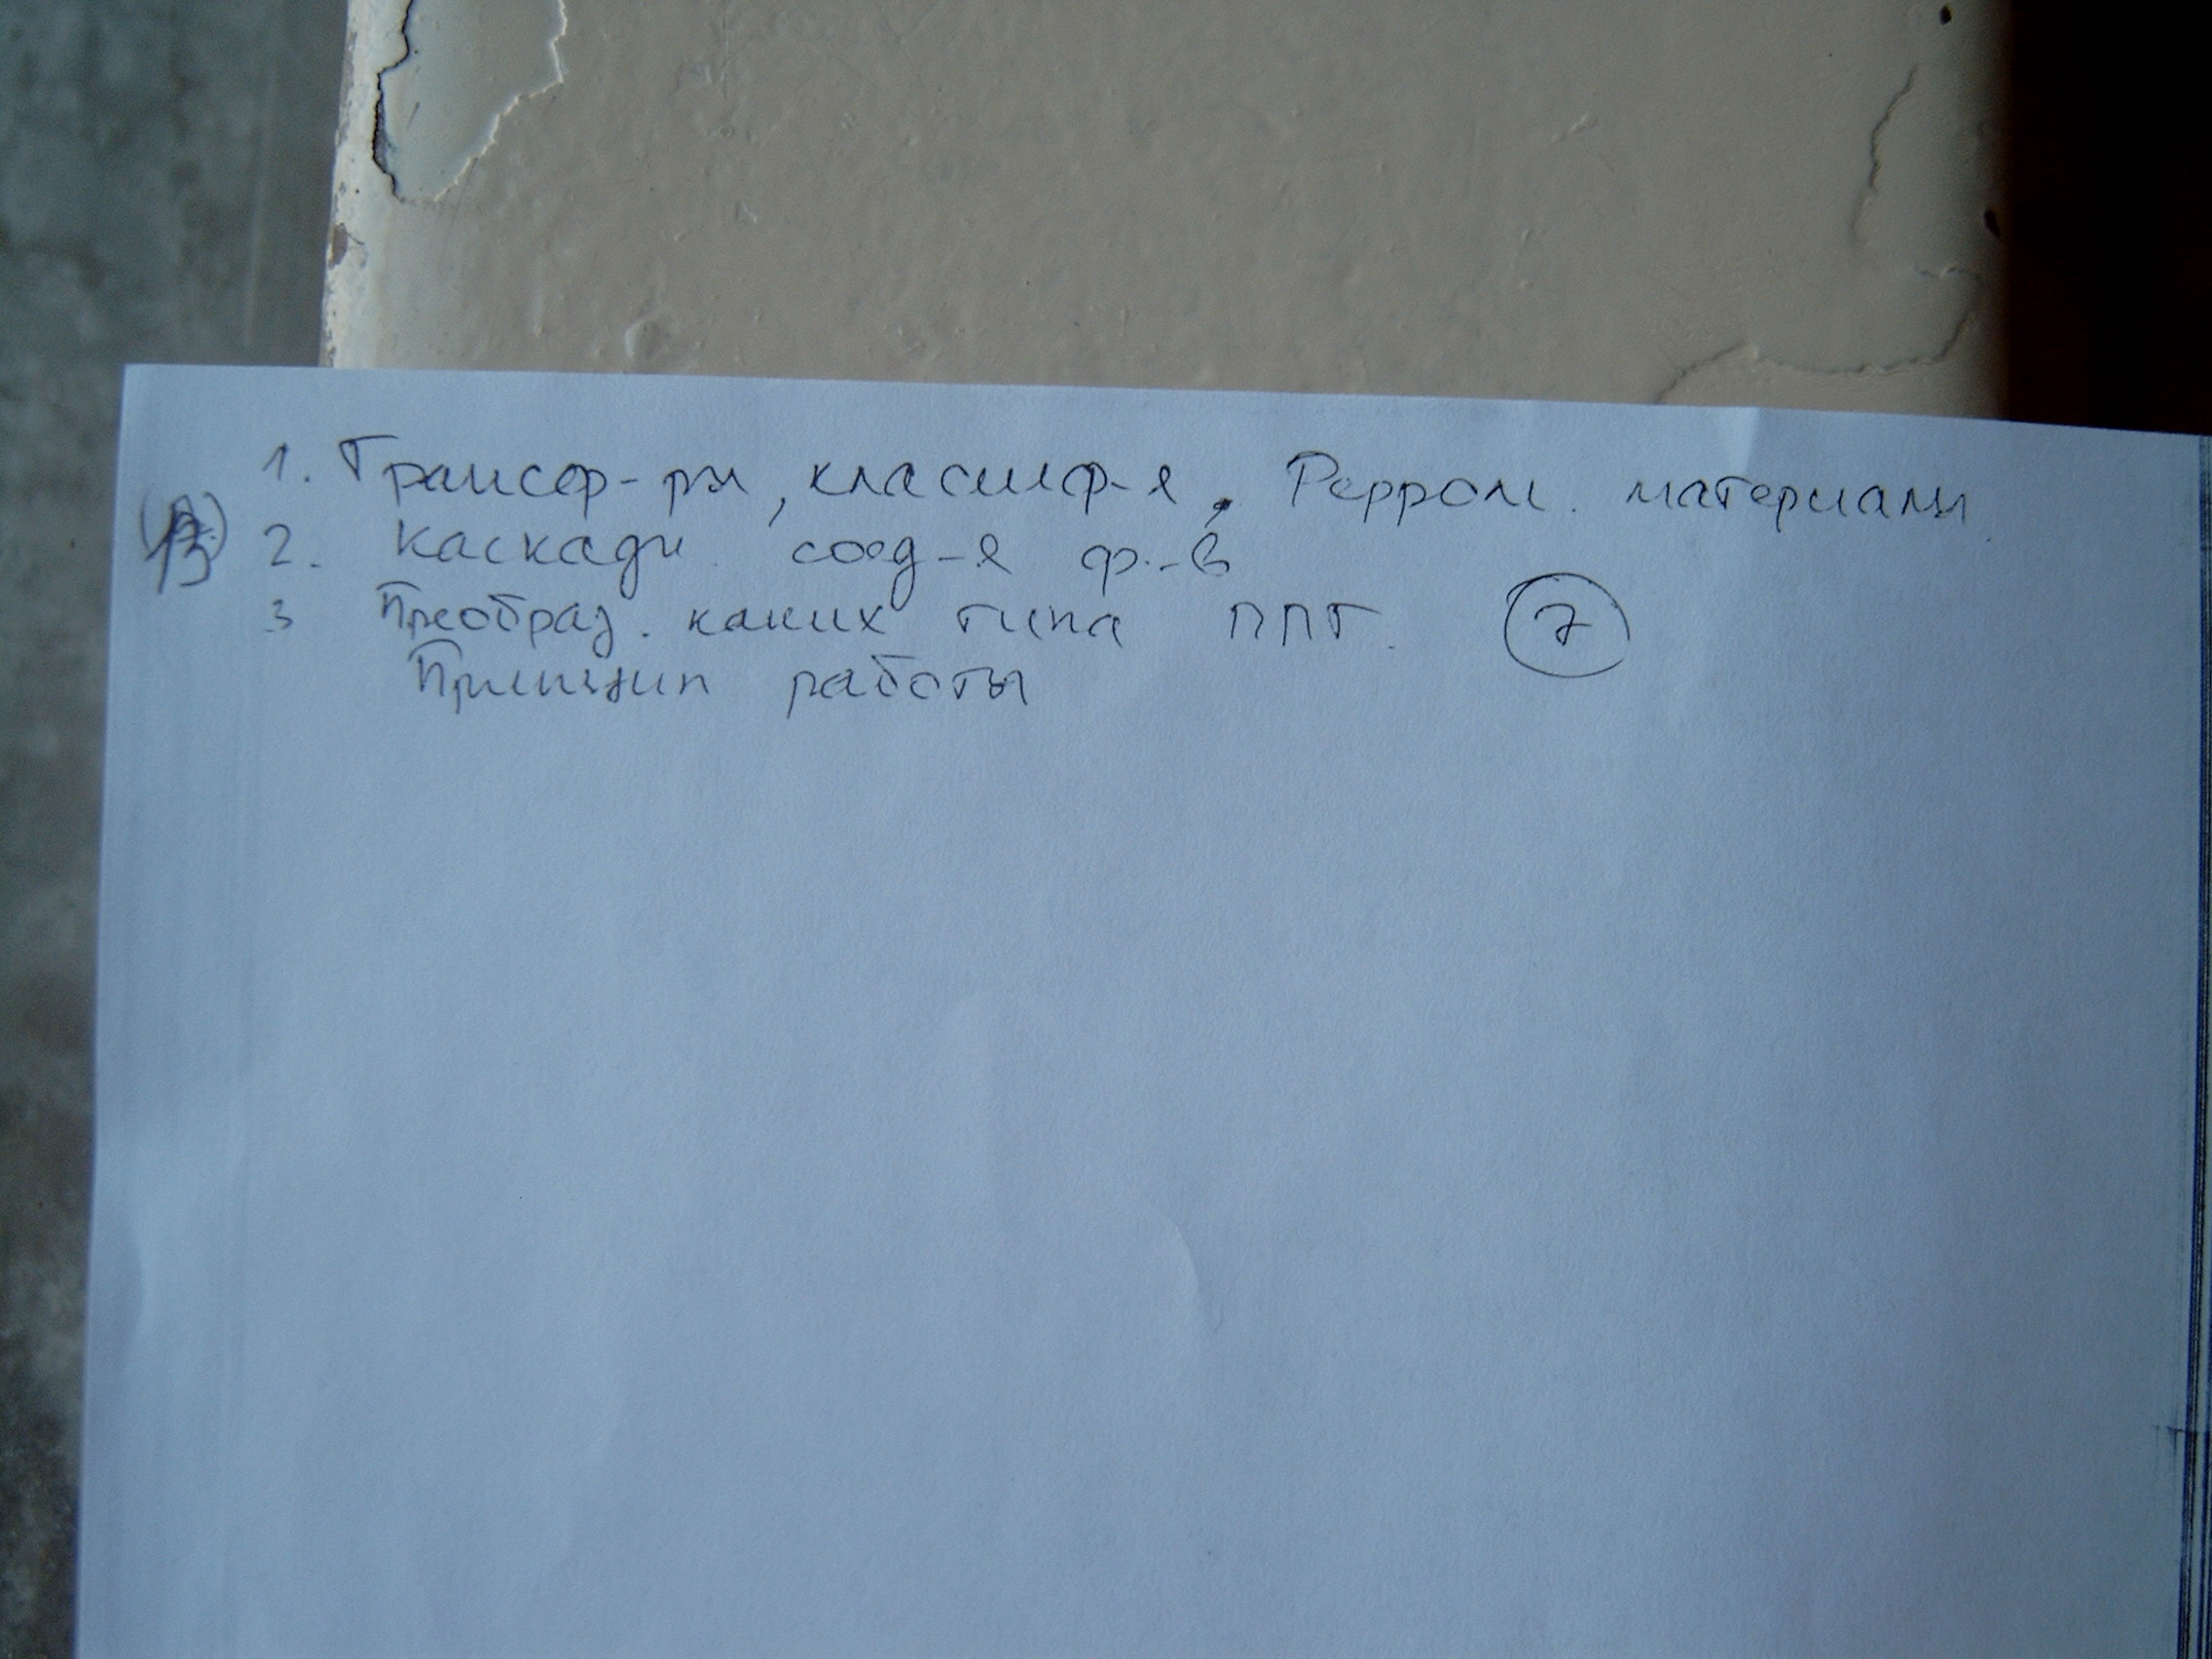 1. Трансф-ры, классиф-я. Ферром. материалы
13 2. Каскадн. соед-я ф.-в
3 Преобраз. каких типа ППТ. 7
Принцип работы